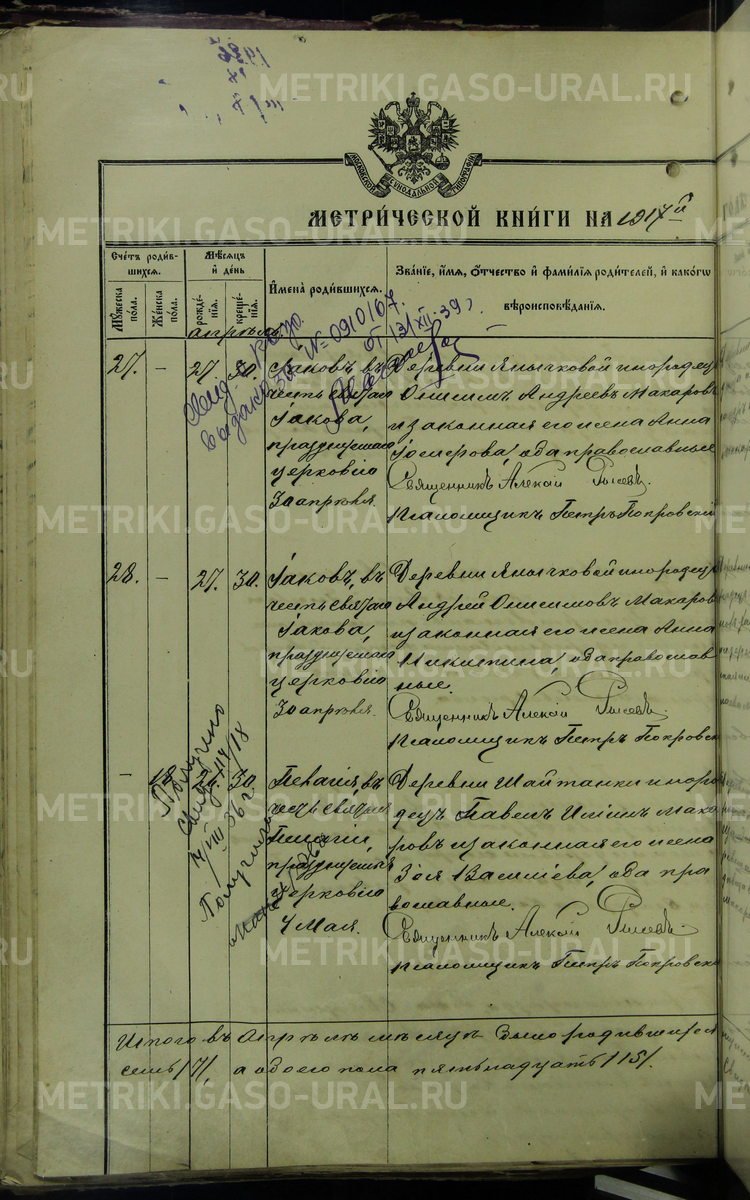 METRIKI.GASO-URAL.RU
МОСКОВСКОЙ СѴНОДАЛЬНОЙ ТИПОГРАФІИ
МЕТРИ́ЧЕСКОЙ КНИ́ГИ НА 1917й
Счетъ родившихся.
Мужеска пола.
Женска пола.
Мѣсяцъ и день
рожденія.
крещенія.
Имена родившихся.
Званіе, имя, отчество и фамилія родителей, и какого вѣроисповѣданія.
апрѣль
№ 0910167.
от 13/XII-39
27. – 27 30.
Іаковъ, въ
честь святаго
Іакова,
празднуемаго
церковію
30 апрѣля.
Деревни Янычковой инородецъ
Онисимъ Андреевъ Макаровъ
и законная его жена Анна
оба православные
Священникъ Алексій
Псаломщикъ Петръ Покровскій
28. – 27. 30.
Іаковъ, въ
честь святаго
Іакова,
празднуемаго
церковію
30 апрѣля.
Деревни Янычковой инородецъ
Андрей Онисимовъ Макаровъ
и законная его жена Анна
Никитина, оба православ
ные.
Священникъ Алексій
Псаломщикъ Петръ Покровск
– 30
Пелагія, въ
честь святыя
Пелагіи,
празднуемыя
церковію
4 Мая.
Деревни Шайтанки иноро
децъ Павелъ Макаровъ и законная его жена
Зоя Василіева, оба пра
вославные.
Священникъ Алексій
Псаломщикъ Петръ Покровск
Получено
7/VIII 36 г.
Итого въ Апрѣлѣ мѣсяцѣ было родившихся
семь /7/, а обоего пола пятьнадцать /15/.